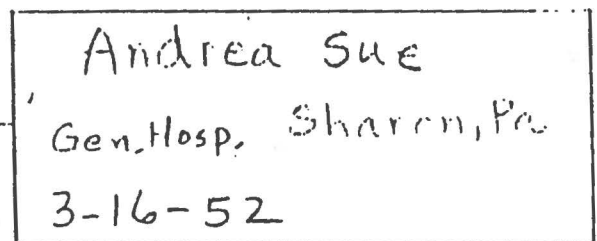 Andrea Sue
Gen. Hosp. Sharon, Pa
3-16-52